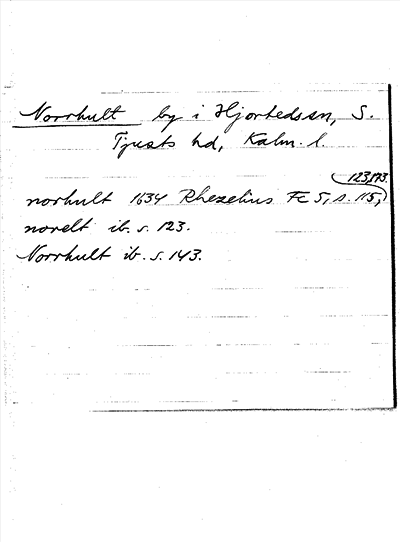 Norrhult by i Hjortedssn, S.
Tjusts hd, Kalm. l.
123, 173.
norhult 1634 Rhezelius Fc 5, s. 115,
norelt ib. s. 123.
Norrhult ib. s. 143.